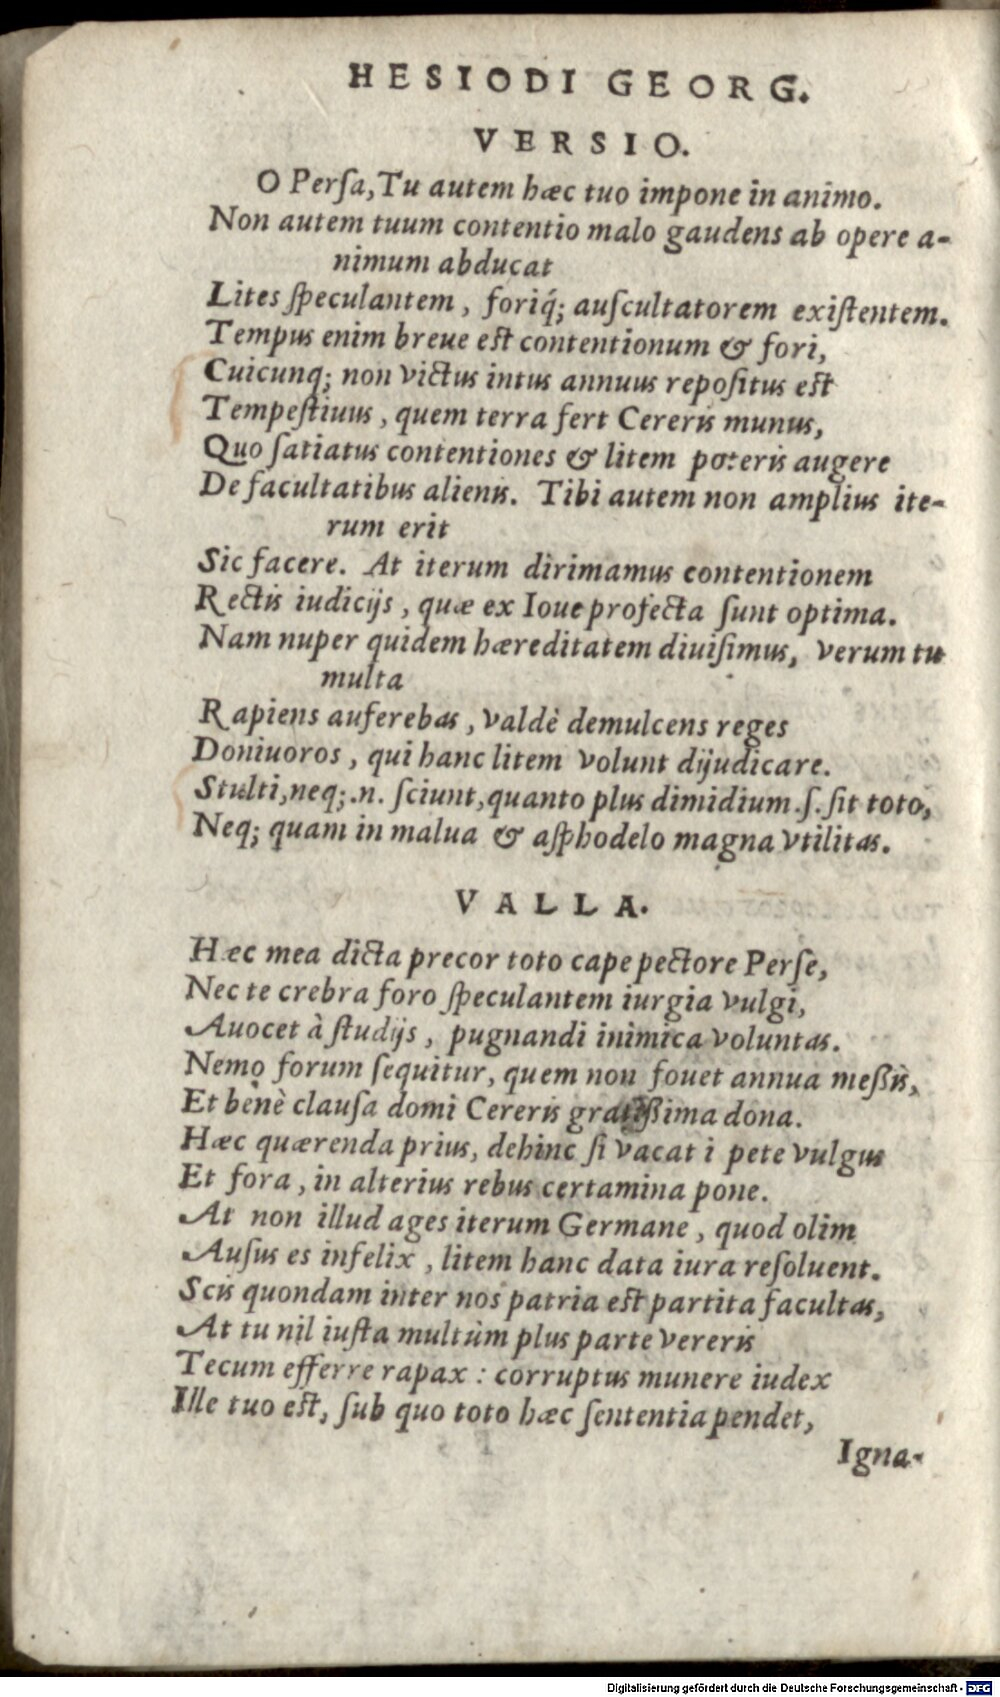 HESIODI GEORG.
VERSIO.
O Persa, Tu autem hæc tuo impone in animo.
Non autem tuum contentio malo gaudens ab opere a-
nimum abducat
Lites speculantem, foriq́; auscultatorem existentem.
Tempus enim breue est contentionum & fori,
Cuicunq; non victus intus annuus repositus est
Tempestiuus, quem terra fert Cereris munus,
Quo satiatus contentiones & litem poteris augere
De facultatibus alienis. Tibi autem non amplius ite-
rum erit
Sic facere. At iterum dirimamus contentionem
Rectis iudicijs, quæ ex Ioue profecta sunt optima.
Nam nuper quidem hæreditatem diuisimus, verum tu
multa
Rapiens auferebas, valdè demulcens reges
Doniuoros, qui hanc litem volunt dijudicare.
Stulti, neq; .n. sciunt, quanto plus dimidium .s. sit toto,
Neq; quam in malua & asphodelo magna vtilitas.
VALLA.
Hæc mea dicta precor toto cape pectore Perse,
Nec te crebra foro speculantem iurgia vulgi,
Auocet à studijs, pugnandi inimica voluntas.
Nemo forum sequitur, quem non fouet annua meßis,
Et benè clausa domi Cereris gratißima dona.
Hæc quærenda prius, dehinc si vacat i pete vulgus
Et fora, in alterius rebus certamina pone.
At non illud ages iterum Germane, quod olim
Ausus es infelix, litem hanc data iura resoluent.
Scis quondam inter nos patria est partita facultas,
At tu nil iusta multùm plus parte vereris
Tecum efferre rapax : corruptus munere iudex
Ille tuo est, sub quo toto hæc sententia pendet,
Igna-
Digitalisierung gefördert durch die Deutsche Forschungsgemeinschaft - DFG